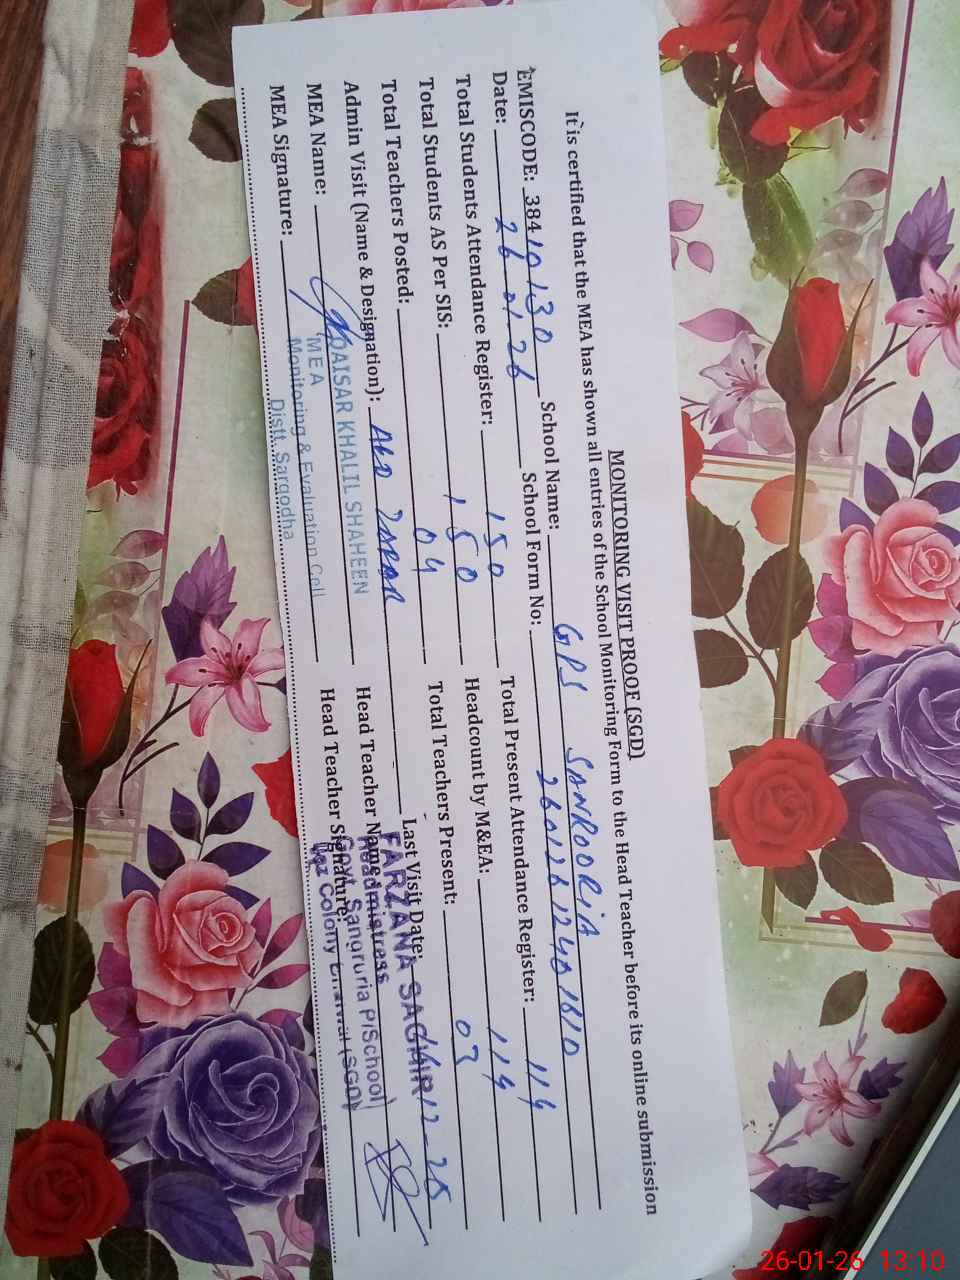 MONITORING VISIT PROOF (SGD)
It is certified that the MEA has shown all entries of the School Monitoring Form to the Head Teacher before its online submission
EMISCODE: 38410130 School Name: GPS SANROORIA
Date: 26-01-26 School Form No: 26012612401810
Total Students Attendance Register: 150 Total Present Attendance Register: 119
Total Students AS Per SIS: 150 Headcount by M&EA: 119
Total Teachers Posted: 04 Total Teachers Present: 03
Admin Visit (Name & Designation): Last Visit Date: 12-25
MEA Name: Head Teacher Name:
MEA Signature: Head Teacher Signature:
QAISAR KHALIL SHAHEEN
MEA
Monitoring & Evaluation Cell
Distt. Sargodha
FARZANA SAGHIR
Headmistress
Govt. Sangruria P/School
Colony (SGD)
26-01-26 13:10